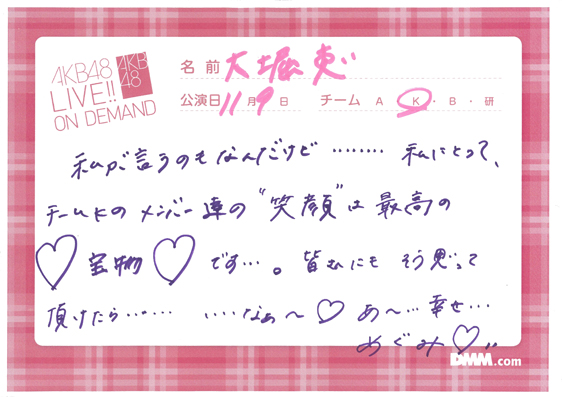 AKB48
LIVE!!
ON DEMAND
AKB
48
名前 大堀恵
公演日 11月9日 チーム A・K・B・研
私が言うのもなんだけど……… 私にとって、
チームKのメンバー達の“笑顔”は最高の
♡宝物♡です…。皆さんにもそう思って
頂けたら…… ‥‥なぁ〜♡あ〜…幸せ…
めぐみ♡
DMM.com